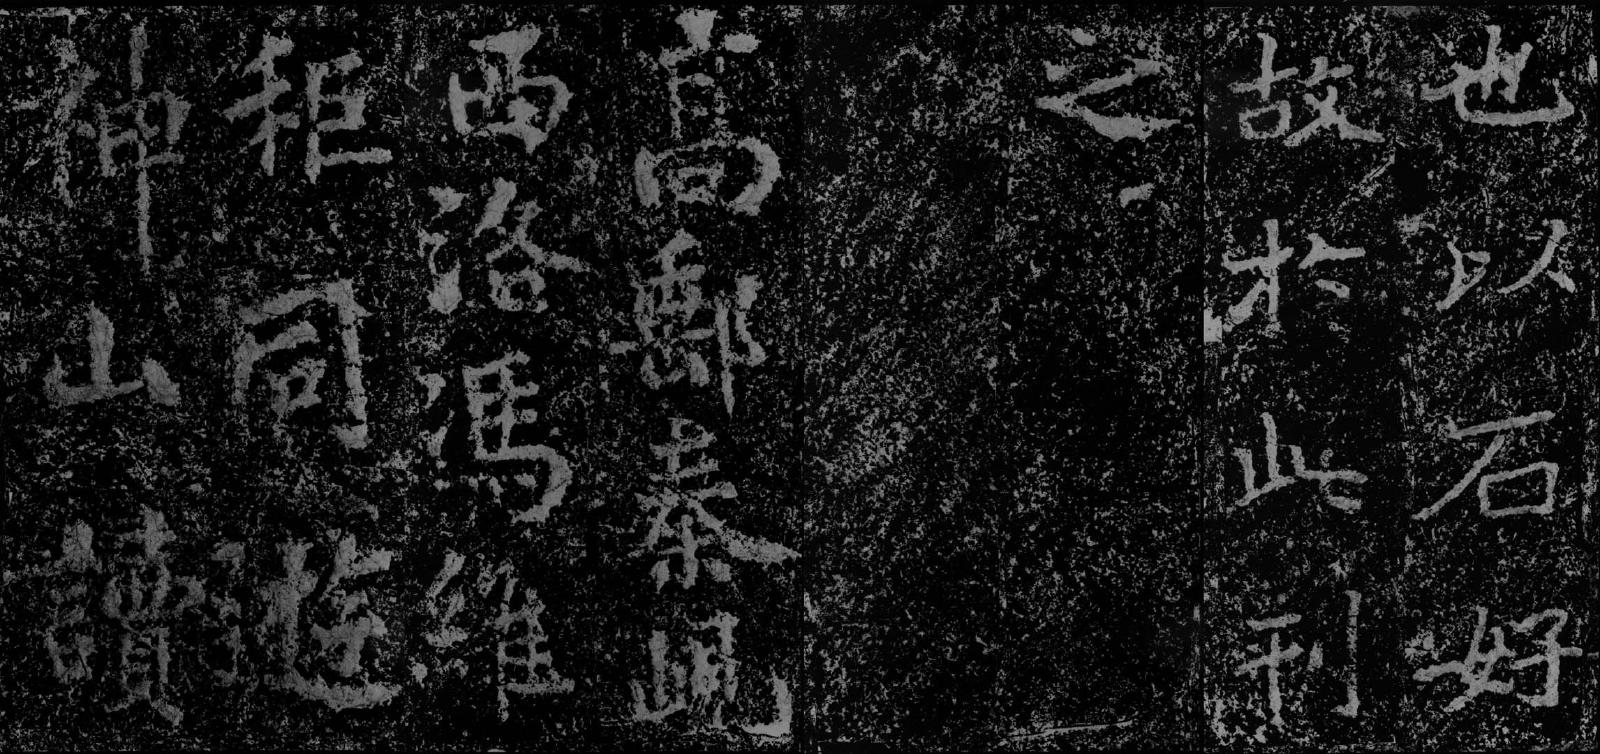 也以石好
故於此刊
之
高郵秦峴
西洛馮維
秬同遊
神山讀